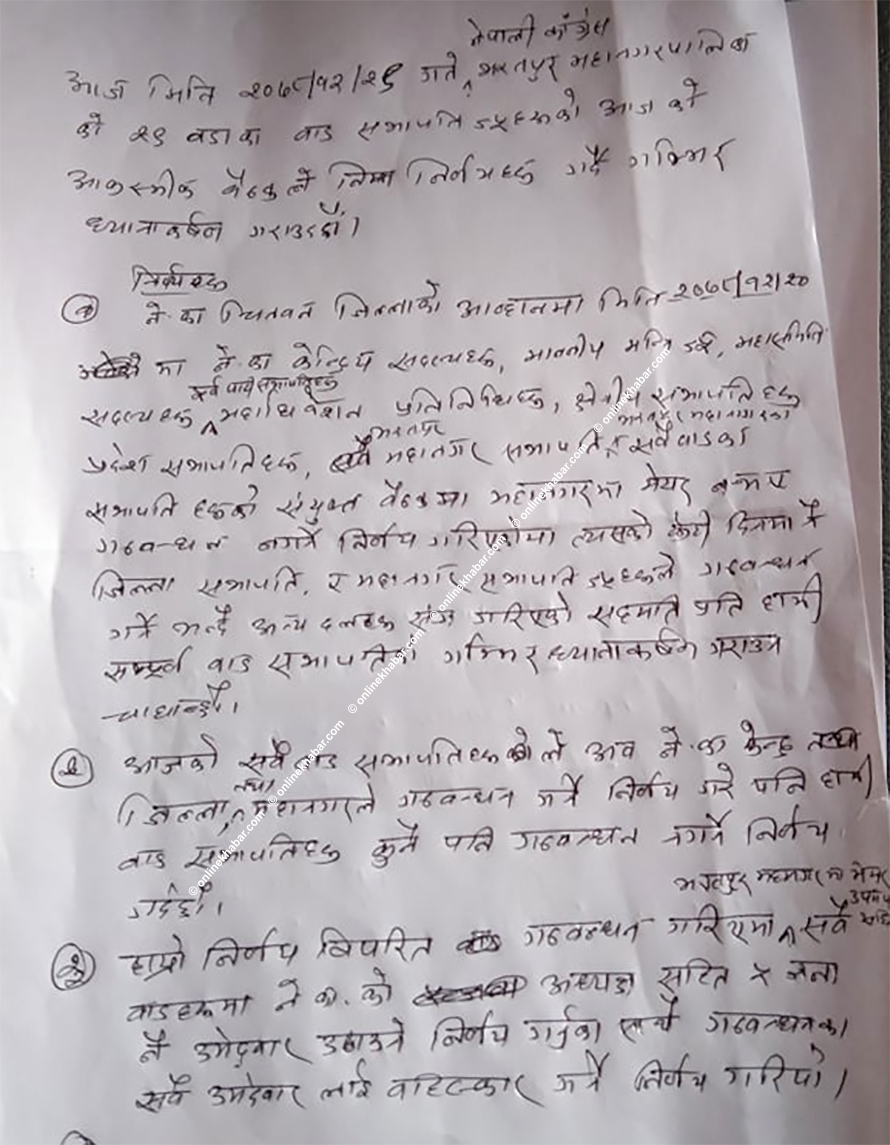 नेपाली काँग्रेस
आज मिति २०७८/१२/२९ गते भरतपुर महानगरपालिका
को २९ वडाका वाड सभापति ज्यूहरुको आज को
आकस्मीक बैठकले निम्न निर्णयहरु गर्दै गम्भिर
ध्यानाकर्षण गराउदछौं।
निर्णयहरु
(क) ने.का चितवन जिल्लाको आव्हानमा मिति २०७८/१२/२०
मा ने.का केन्द्रिय सदस्यहरु, माननीय मन्त्रि ज्यू, महासमिति
सर्व पार्य सभापतिहरु
सदस्यहरु महाधिवेशन प्रतिनिधिहरु, क्षेत्रीय सभापतिहरु
भरतपुर भरतपुर महानगरका
प्रदेश सभापतिहरु, महानगर सभापति सवै वाडका
सभापति हरुको संयुक्त बैठकमा महानगरमा मेयर
गठबन्धन नगर्ने निर्णय गरिएकोमा त्यसको केही दिनमा नै
जिल्ला सभापति, र महानगर सभापति ज्यूहरुले गठबन्धन
गर्ने भन्दै अन्य दलहरु संग गरिएको सहमति प्रति हामी
सम्पूर्ण वाड सभापतिको गम्भिर ध्यानाकर्षण गराउन
चाहान्छौं।
(ख) आजको सवै वाड सभापतिहरु ले अव ने.का केन्द्र
तथा
जिल्ला, महानगरले गठबन्धन गर्ने निर्णय गरे पनि हामी
वाड सभापतिहरु कुनै पनि गठबन्धन नगर्ने निर्णय
गर्दछौं।
भरतपुर महानगर का मेयर
उपमेयर सहित
(ग) हाम्रो निर्णय विपरित गठबन्धन गरिएमा सवै
वाडहरुमा ने.का. को अध्यक्ष सहित ५ जना
नै उमेदवार उठाउने निर्णय गर्नुका साथै गठबन्धनका
सवै उमेदवार लाई वहिस्कार गर्ने निर्णय गरियो।
© onlinekhabar.com © onlinekhabar.com © onlinekhabar.com © onlinekhabar.com © onlinekhabar.com © onlinekhabar.com © onlinekhabar.com